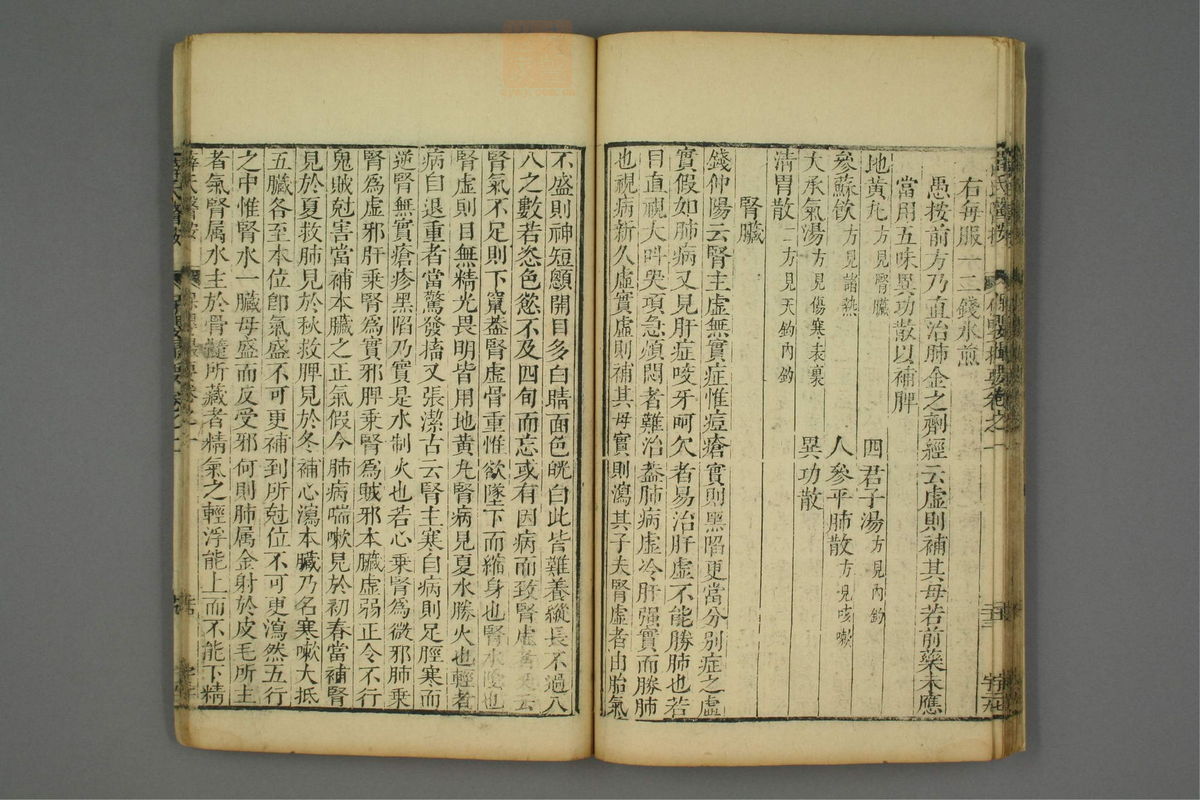 右每服一二錢水煎
愚按前方乃直治肺金之劑經云虛則補其母若前藥未應
當用五味異功散以補脾
地黃丸方見腎臟 四君子湯方見內釣
參蘇飲方見諸熱 人參平肺散方見咳嗽
大承氣湯方見傷寒表裏 異功散
清胃散二方見天釣內釣
腎臟
錢仲陽云腎主虛無實症惟痘瘡實則黑陷更當分別症之虛
實假如肺病又見肝症咬牙呵欠者易治肝虛不能勝肺也若
目直視大叫哭項急煩悶者難治葢肺病虛冷肝强實而勝肺
也視病新久虛實虛則補其母實則瀉其子夫腎虛者由胎氣
不盛則神短顖開目多白睛面色㿠白此皆難養縱長不過八
八之數若恣色慾不及四旬而忘或有因病而致腎虛者又云
腎氣不足則下竄葢腎虛骨重惟欲墜下而縮身也腎水陰也
腎虛則目無精光畏明皆用地黃丸腎病見夏水勝火也輕者
病自退重者當驚發搐又張潔古云腎主寒自病則足脛寒而
逆腎無實瘡疹黑陷乃實是水制火也若心乘腎爲微邪肺乘
腎爲虛邪肝乘腎爲實邪脾乘腎爲賊邪本臟虛弱正令不行
鬼賊尅害當補本臟之正氣假令肺病喘嗽見於初春當補腎
見於夏救肺見於秋救脾見於冬補心瀉本臟乃名寒嗽大抵
五臟各至本位卽氣盛不可更補到所尅位不可更瀉然五行
之中惟腎水一臟母盛而反受邪何則肺属金射於皮毛所主
者氣腎属水主於骨髓所藏者精氣之輕浮能上而不能下精